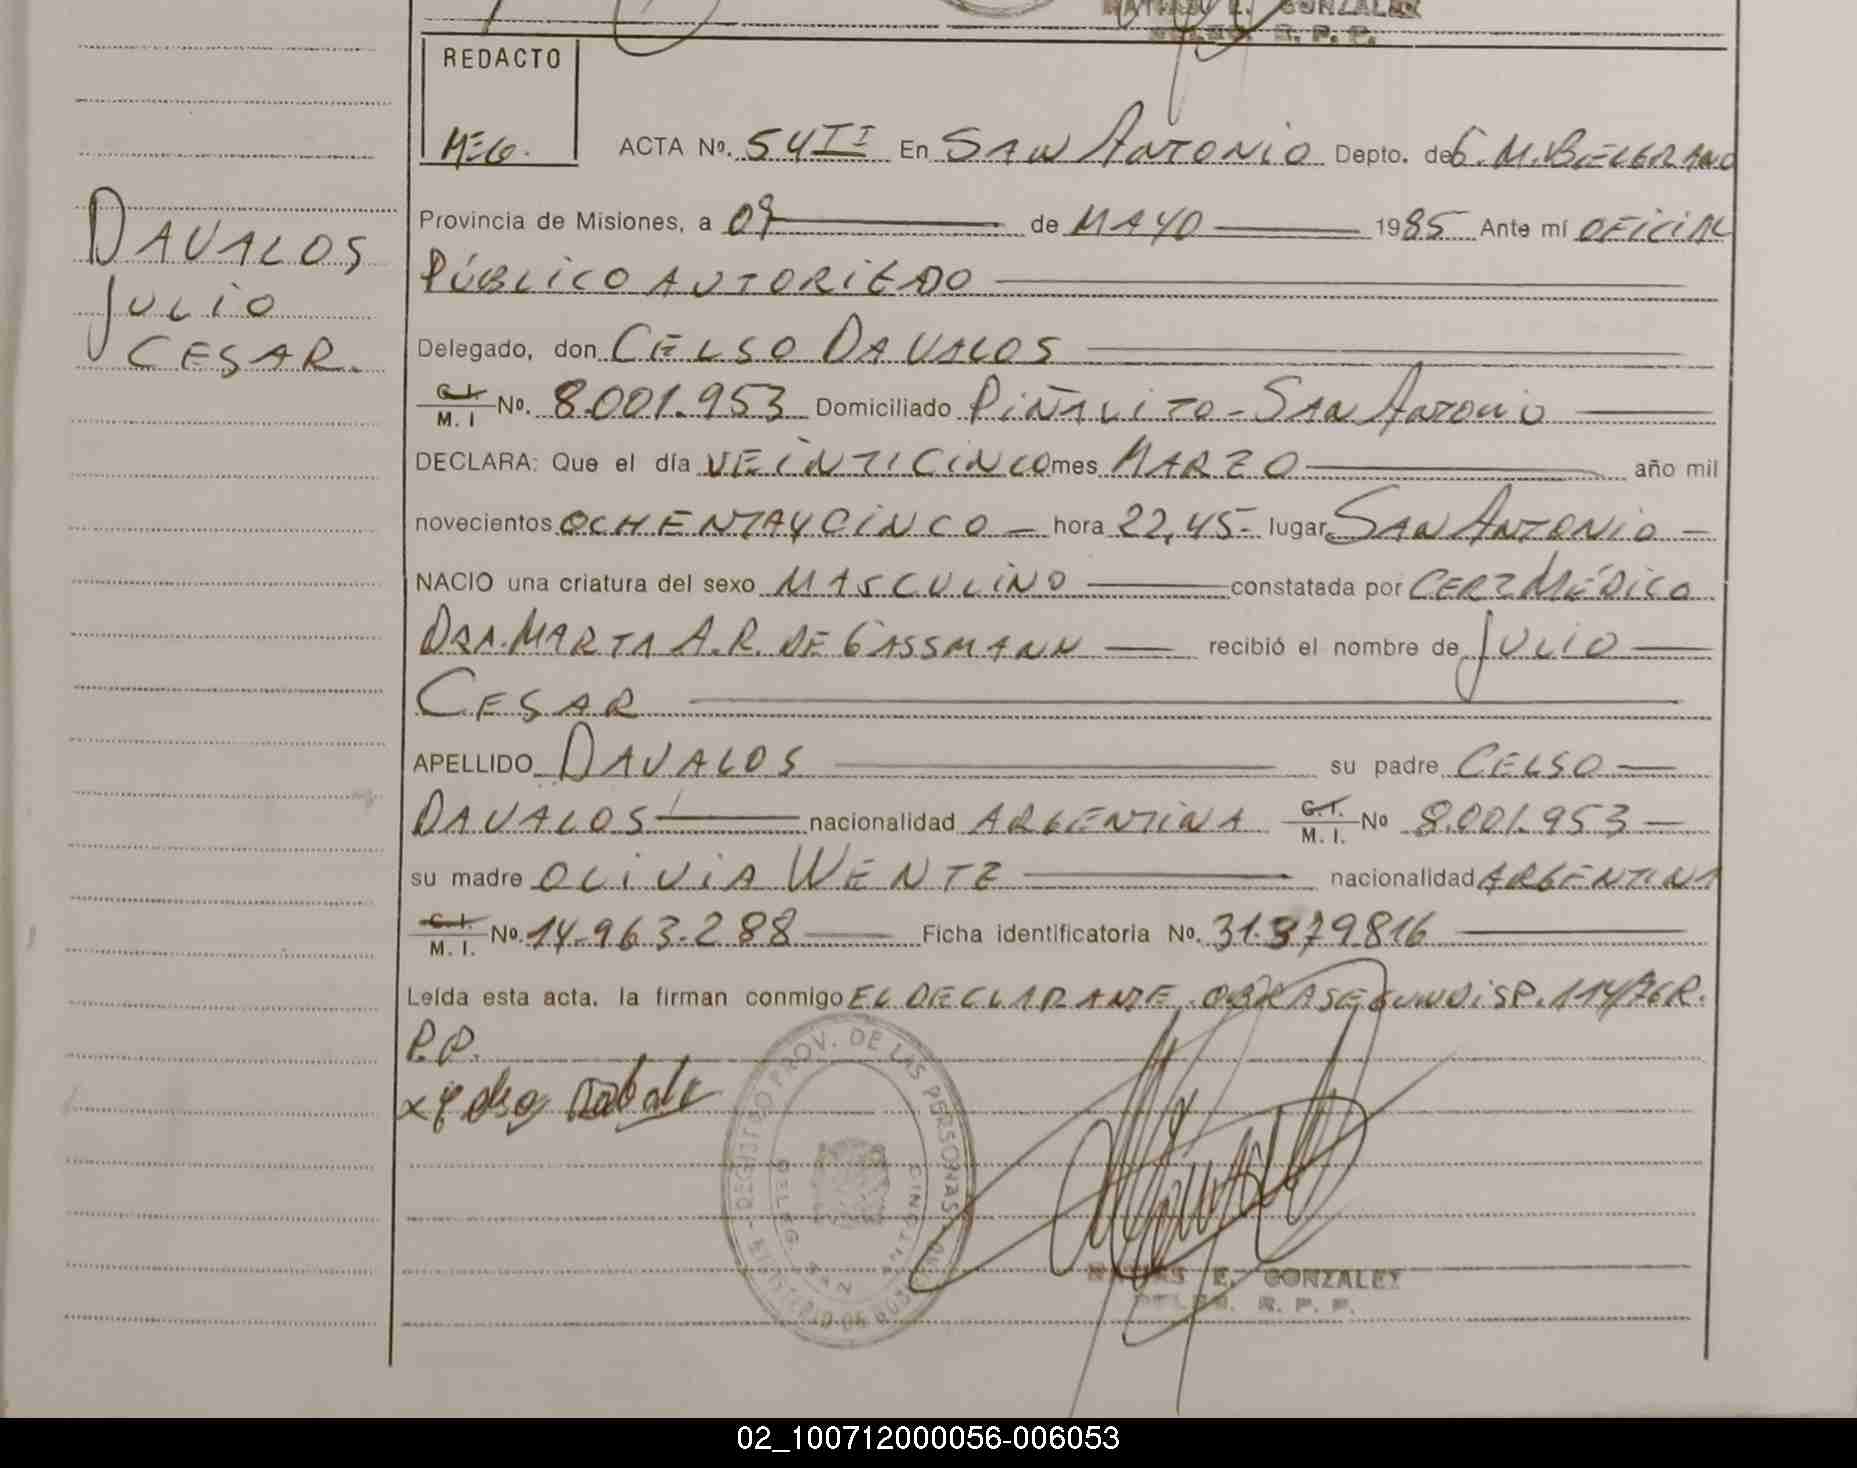 GONZALEZ
R. P. P.
REDACTO
MEG.
ACTA Nº. 54 II En SAN ANTONIO Depto. de G. M. BELGRANO
DAVALOS
JULIO
CESAR.
Provincia de Misiones, a 09 de MAYO 1985 Ante mí OFICIAL
PÚBLICO AUTORIZADO
Delegado, don CELSO DAVALOS
C. I. / M. I Nº. 8.001.953 Domiciliado PIÑALITO - SAN ANTONIO
DECLARA: Que el día VEINTICINCO mes MARZO año mil
novecientos OCHENTA Y CINCO - hora 22,45- lugar SAN ANTONIO -
NACIO una criatura del sexo MASCULINO constatada por CERT MÉDICO
DRA. MARTA A. R. DE GASSMANN recibió el nombre de JULIO
CESAR
APELLIDO DAVALOS su padre CELSO
DAVALOS nacionalidad ARGENTINA C. I. / M. I. Nº 8.001.953 -
su madre OLIVIA WENTZ nacionalidad ARGENTINA
C. I. / M. I. Nº. 14.963.288 Ficha identificatoria Nº. 31.379816
Leída esta acta, la firman conmigo EL DECLARANTE. OBRA SEGUN DISP. 114/76 R.
P.P.
REGISTRO PROV. DE LAS PERSONAS
DELEG. SAN ANTONIO
MINISTERIO DE GOBIERNO
E. GONZALEZ
R. P. P.
02_100712000056-006053